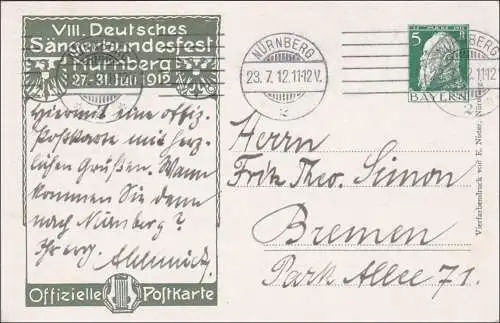 VIII. Deutsches
Sängerbundesfest
Nürnberg
27.-31. Juli 1912
Hiermit eine offiz.
Postkarte mit herz-
lichen Grüßen. Wann
kommen Sie denn
nach Nürnberg?
Ihr erg.
Offizielle Postkarte
NÜRNBERG
23. 7. 12. 11-12 V.
2
5
BAYERN
Herrn
Fritz Theo. Simon
Bremen
Park Allee 71.
Vierfarbendruck von E. Nister,